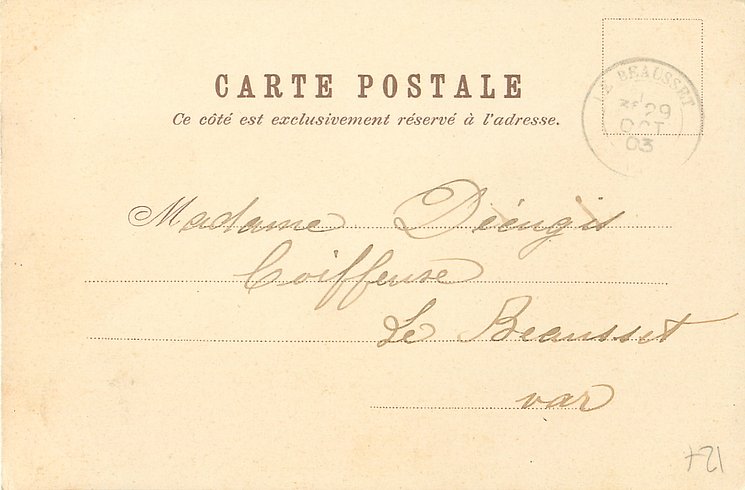 CARTE POSTALE
Ce côté est exclusivement réservé à l'adresse.
LE BEAUSSET
29
OCT
03
Madame
Coiffeuse
Le Beausset
var